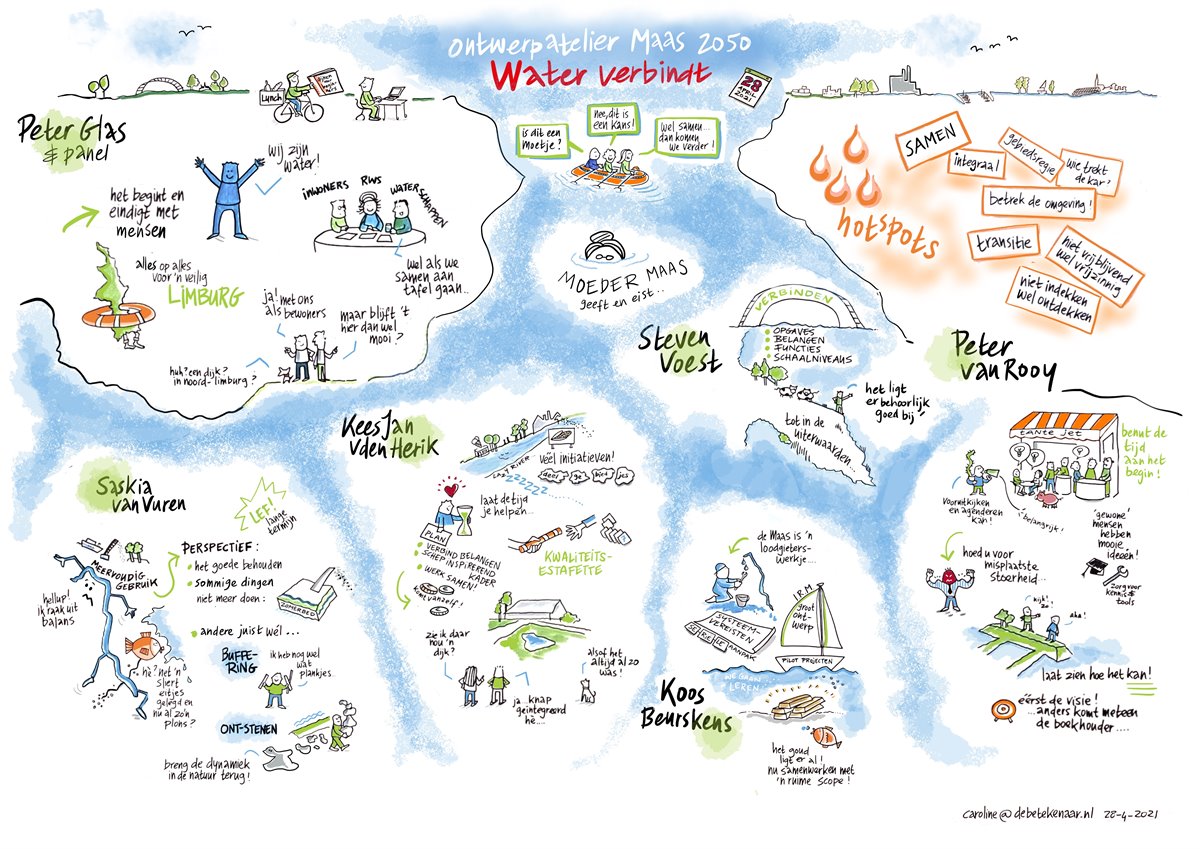 ontwerpatelier Maas 2050
Water verbindt
28
APRIL
2021
is dit een
moetje?
nee, dit is
een kans!
wel samen...
dan komen
we verder!
Lunch
Peter Glas
& panel
wij zijn
water!
het begint en
eindigt met
mensen
inwoners
RWS
waterschappen
wel als we
samen aan
tafel gaan...
alles op alles
voor 'n veilig
LIMBURG
ja! met ons
als bewoners
maar blijft 't
hier dan wel
mooi?
huh? een dijk?
in noord-limburg?
MOEDER MAAS
geeft en eist...
hotspots
SAMEN
integraal
gebiedsregie
wie trekt
de kar?
betrek de omgeving!
transitie
niet vrijblijvend
wel vrijzinnig
niet indekken
wel ontdekken
Steven
Voest
VERBINDEN
OPGAVES
BELANGEN
FUNCTIES
SCHAALNIVEAUS
het ligt
er behoorlijk
goed bij,
tot in de
uiterwaarden...
Peter
van Rooy
tante jet
benut de
tijd
aan het
begin!
vooruitkijken
en agenderen
kan!
'belangrijk!'
'gewone'
mensen
hebben
mooie
ideeën!
hoed u voor
misplaatste
stoerheid...
zorg voor
kennis &
tools
kijk!
zo
aha!
laat zien hoe het kan!
eérst de visie!
...anders komt meteen
de boekhouder....
Kees Jan
v den Herik
LAZY RIVER
zzzzzzz
veel initiatieven!
deel-ge-bied-jes
laat de tijd
je helpen...
PLAN
VERBIND BELANGEN
SCHEP INSPIREREND
KADER
WERK SAMEN!
komt vanzelf!
KWALITEITS-
ESTAFETTE
zie ik daar
nou 'n
dijk?
ja knap
geïntegreerd
hè...
alsof het
altijd al zo
was!
Saskia
van Vuren
LEF!
lange
termijn
MEERVOUDIG
GEBRUIK
hellup!
ik raak uit
balans
PERSPECTIEF:
het goede behouden
sommige dingen
niet meer doen:
ZOMERBED
andere juist wél...
hè? net 'n
sliert
eitjes
gelegd en
nu al zo'n
plons?
BUFFE-
RING
ik heb nog wel
wat
plankjes
ONT-STENEN
breng de dynamiek
in de natuur terug!
Koos
Beurskens
de Maas is 'n
loodgieters-
werkje....
SYSTEEM-
VEREISTEN
AANPAK
I.R.M.
groot
ont-
werp
PILOT PROJECTEN
WE GAAN
LEREN!
het goud
ligt er al!
nu samenwerken met
'n ruime scope!
caroline@debetekenaar.nl 28-4-2021